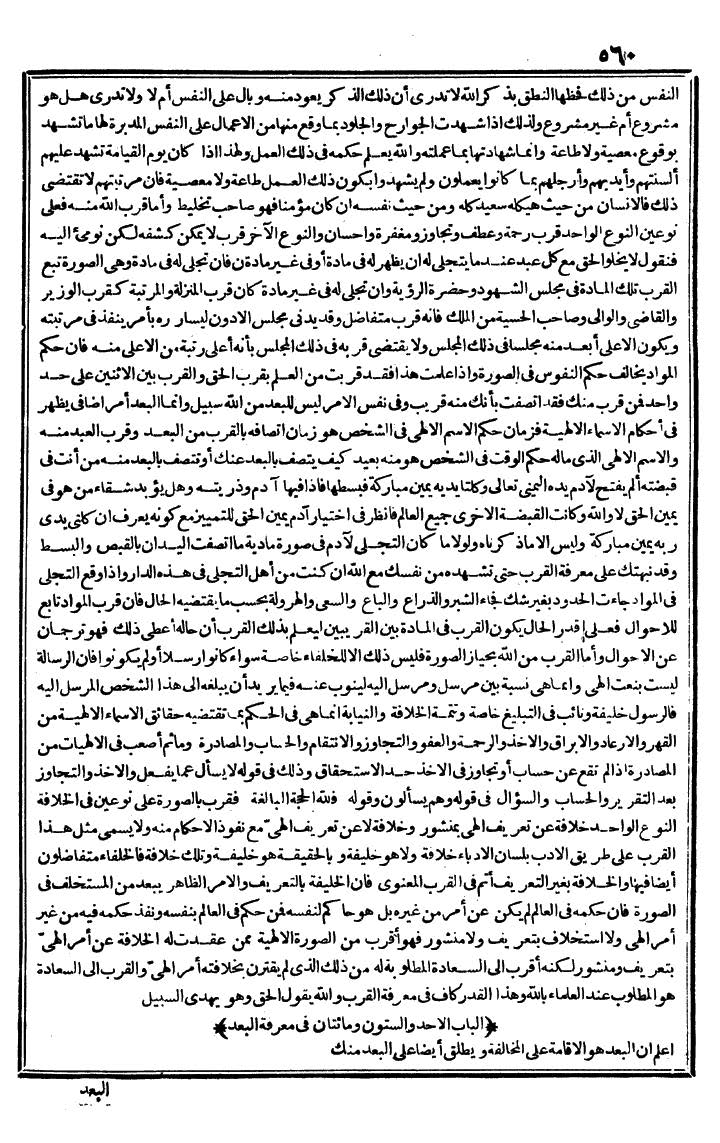 ٥٦٠
النفس من ذلك فحظها النطق بذكر الله لا تدرى أن ذلك الذكر يعود منه وبال على النفس أم لا ولا تدرى هل هو
مشروع أم غير مشروع ولذلك اذا شهدت الجوارح والجلود بما وقع منها من الاعمال على النفس المدبرة لها ما تشهد
بوقوع معصية ولا طاعة وانما شهادتها بما عملته والله يعلم حكمه فى ذلك العمل ولهذا اذا كان يوم القيامة تشهد عليهم
ألسنتهم وأيديهم وأرجلهم بما كانوا يعملون ولم يشهدوا بكون ذلك العمل طاعة ولا معصية فان مرتبتهم لا تقتضى
ذلك فالانسان من حيث هيكله سعيد كله ومن حيث نفسه ان كان مؤمنا فهو صاحب تخليط وأما قرب الله منه فعلى
نوعين النوع الواحد قرب رحمة وعطف وتجاوز ومغفرة واحسان والنوع الآخر قرب لا يمكن كشفه لكن نومئ اليه
فنقول لا يخلو الحق مع كل عبد عند ما يتجلى له ان يظهر له فى مادة أو فى غير مادة ن فان تجلى له فى مادة وهى الصورة تبع
القرب تلك المادة فى مجلس الشهود وحضرة الرؤية وان تجلى له فى غير مادة كان قرب المنزلة والمرتبة كقرب الوزير
والقاضى والوالى وصاحب الحسبة من الملك فانه قرب متفاضل وقد يدنى مجلس الادون ليساره بأمر ينفذ فى مرتبته
ويكون الاعلى أبعد منه مجلسا فى ذلك المجلس ولا يقتضى قربه فى ذلك المجلس بأنه أعلى رتبة من الاعلى منه فان حكم
المواد يخالف حكم النفوس فى الصورة واذا علمت هذا فقد قربت من العلم بقرب الحق والقرب بين الاثنين على حد
واحد فمن قرب منك فقد اتصفت بأنك منه قريب وفى نفس الامر ليس للبعد من الله سبيل وانما البعد أمر اضافى يظهر
فى أحكام الاسماء الالهية فزمان حكم الاسم الالهى فى الشخص هو زمان اتصافه بالقرب من البعد وقرب العبد منه
والاسم الالهى الذى ماله حكم الوقت فى الشخص هو منه بعيد كيف يتصف بالبعد عنك أو تتصف بالبعد منه من أنت فى
قبضته ألم يفتح لآدم يده اليمنى تعالى وكلتا يديه يمين مباركة فبسطها فاذا فيها آدم وذريته وهل يؤيد شقاء من هو فى
يمين الحق لا والله وكانت القبضة الاخرى جميع العالم فانظر فى اختيار آدم يمين الحق للتمييز مع كونه يعرف ان كلتى يدى
ربه يمين مباركة وليس الا ما ذكرناه ولولا ما كان التجلى لآدم فى صورة مادية ما اتصفت اليدان بالقبض والبسط
وقد نبهتك على معرفة القرب حتى تشهده من نفسك مع الله ان كنت من أهل التجلى فى هذه الدار واذا وقع التجلى
فى المواد جاءت الحدود بغير شك فجاء الشبر والذراع والباع والسعى والهرولة بحسب ما يقتضيه الحال فان قرب المواد تابع
للاحوال فعلى قدر الحال يكون القرب فى المادة بين القريبين ليعلم بذلك القرب أن حاله أعطى ذلك فهو ترجمان
عن الاحوال وأما القرب من الله بحيازا لصورة فليس ذلك الا للخلفاء خاصة سواء كانوا رسلا أو لم يكونوا فان الرسالة
ليست بنعت الهى وانما هى نسبة بين مرسل ومرسل اليه لينوب عنه فيما يريد أن يبلغه الى هذا الشخص المرسل اليه
فالرسول خليفة ونائب فى التبليغ خاصة وتتمة الخلافة والنيابة انما هى فى الحكم بما تقتضيه حقائق الاسماء الالهية من
القهر والارعاد والابراق والاخذ والرحمة والعفو والتجاوز والانتقام والحساب والمصادرة وما ثم أصعب فى الالهيات من
المصادرة اذا لم تقع عن حساب أو تجاوز فى الاخذ حد الاستحقاق وذلك فى قوله لا يسأل عما يفعل والاخذ والتجاوز
بعد التقرير والحساب والسؤال فى قوله وهم يسألون وقوله فلله الحجة البالغة فقرب بالصورة على نوعين فى الخلافة
النوع الواحد خلافة عن تعريف الهى بمنشور وخلافة لا عن تعريف الهى مع نفوذ الاحكام منه ولا يسمى مثل هذا
القرب على طريق الادب بلسان الادباء خلافة ولا هو خليفة وبالحقيقة هو خليفة وتلك خلافة فالخلفاء متفاضلون
أيضا فيها والخلافة بغير التعريف أتم فى القرب المعنوى فان الخليفة بالتعريف والامر الظاهر يبعد من المستخلف فى
الصورة فان حكمه فى العالم لم يكن عن أمر من غيره بل هو حاكم لنفسه فمن حكم فى العالم بنفسه ونفذ حكمه فيه من غير
أمر الهى ولا استخلاف بتعريف ولا منشور فهو أقرب من الصورة الالهية ممن عقدت له الخلافة عن أمر الهى
بتعريف ومنشور لكنه أقرب الى السعادة المطلوبة له من ذلك الذى لم يقترن بخلافته أمر الهى والقرب الى السعادة
هو المطلوب عند العلماء بالله وهذا القدر كاف فى معرفة القرب والله يقول الحق وهو يهدى السبيل
﴿الباب الاحد والستون ومائتان فى معرفة البعد﴾
اعلم ان البعد هو الاقامة على المخالفة ويطلق أيضا على البعد منك
البعد